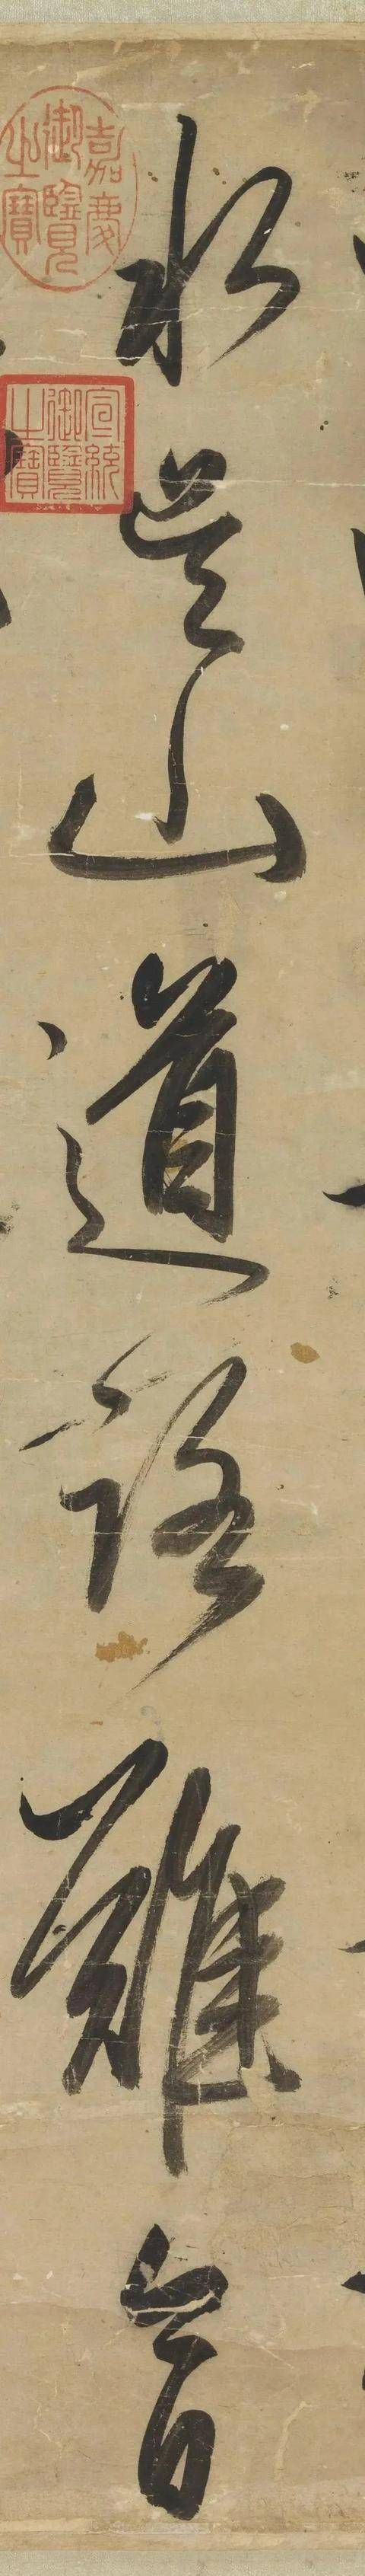 水吳山道路難今日
嘉慶御覽之寶
宣統御覽之寶